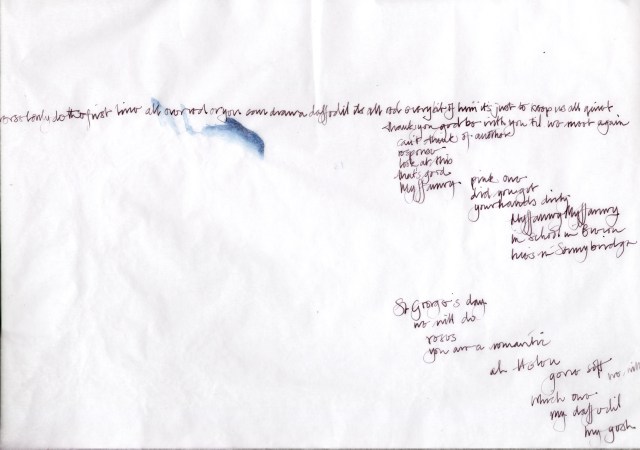 only do the first line all over red or you can draw a daffodil its all red every bit of him its just to keep us all quiet
thank you god be with you til we meet again
can't think of another
response
look at this
that's good
Myffanwy
pink one
did you get
your hands dirty
Myffanwy Myffanwy
in school in
lives in Sennybridge
St George's day
we will do
roses
you are a romantic
ah
gone soft
which one
my daffodil
my gosh